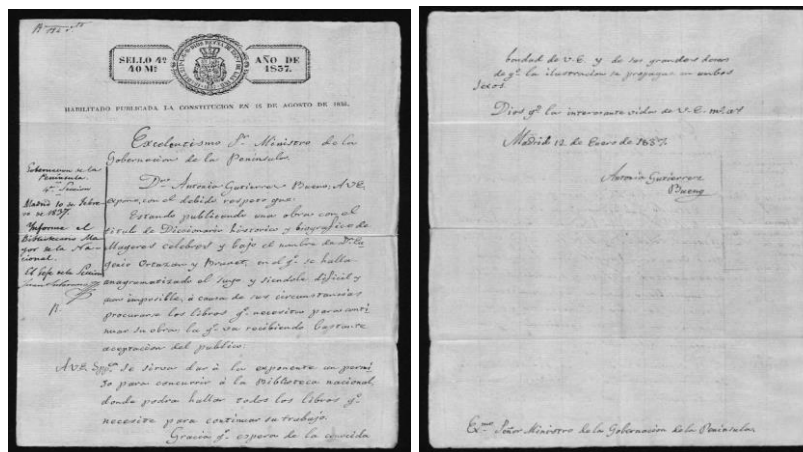 SELLO 4º
40 Mˢ
AÑO DE
1837.
HABILITADO PUBLICADA LA CONSTITUCION EN 15 DE AGOSTO DE 1836.
Excelentisimo Sʳ Ministro de la
Gobernacion de la Peninsula
Dª Antonia Gutierrez Bueno, A V.E.
expone, con el debido respeto que:
Estando publicando una obra con el
titulo de Diccionario historico y biografico de
Mugeres celebres y bajo el nombre de Eu
genio Ortazan y Brunet, en el qᵉ se halla
anagramatizado el suyo y siendole dificil y
aun imposible, á causa de sus circunstancias
procurarse los libros qᵉ necesita para conti
nuar su obra, la qᵉ va recibiendo bastante
aceptacion del publico.
A V.E. Suppᶜᵃ se sirva dar á la exponente un permi
so para concurrir á la Biblioteca nacional
donde podrá hallar todos los libros qᵉ
necesite para continuar su trabajo.
Gracia qᵉ espera de la conocida
Gobernacion de la
Peninsula.
4ª Seccion
Madrid 10 de Febre
ro de 1837.
Informe el
Bibliotecario Ma
yor de la Na
cional.
El Gefe de la Seccion
bondad de V.E. y de sus grandes deseos
de qᵉ la ilustracion se propague en ambos
sexos.
Dios gᵉ la interesante vida de V.E. mˢ aˢ
Madrid 12 de Enero de 1837.
Antonia Gutierrez
Bueno
Exᵐᵒ Señor Ministro de la Gobernacion de la Peninsula